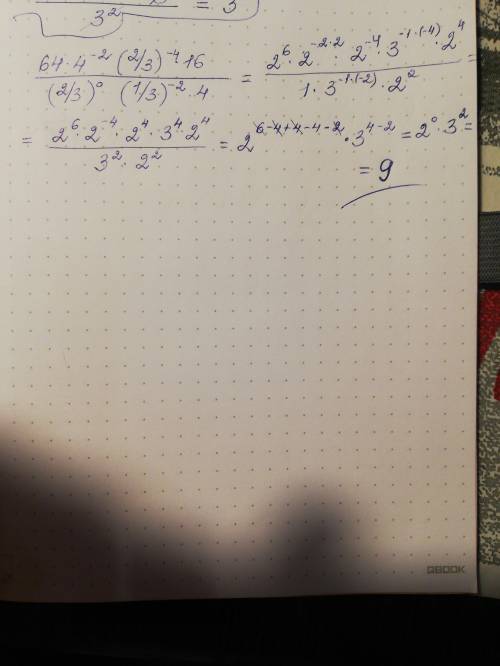 3² = 3
64·4⁻² (2/3)⁻⁴ 16 / (2/3)⁰ (1/3)⁻² · 4 = 2⁶·2⁻²·²·2⁻⁴·3⁻¹·⁽⁻⁴⁾·2⁴ / 1·3⁻¹·⁽⁻²⁾·2² =
= 2⁶·2⁻⁴·2⁴·3⁴·2⁴ / 3²·2² = 2⁶⁻⁴⁺⁴⁻⁴⁻²·3⁴⁻² = 2⁰·3² =
= 9
QBOOK